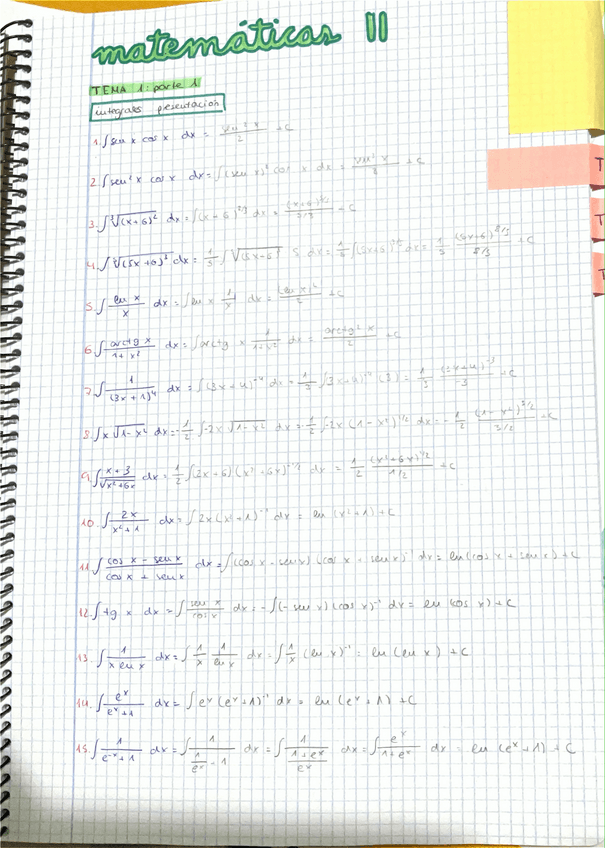 matemáticas II
TEMA 1: parte 1
integrales presentación
1. ∫ sen x cos x dx = sen² x / 2 + C
2. ∫ sen² x cos x dx = ∫ (sen x)² cos x dx = sen³ x / 3 + C
3. ∫ ∛(x+6)² dx = ∫ (x+6)^(2/3) dx = (x+6)^(5/3) / 5/3 + C
4. ∫ √(5x+6)³ dx = 1/5 ∫ √(5x+6) 5 dx = 1/5 ∫ (5x+6) dx = 1/5 (5x+6)^(8/3) / 8/3 + C
5. ∫ ln x / x dx = ∫ ln x 1/x dx = (ln x)² / 2 + C
6. ∫ arctg x / 1+x² dx = ∫ arctg x 1/1+x² dx = arctg² x / 2 + C
7. ∫ 1 / (3x+1)⁴ dx = ∫ (3x+4)⁻⁴ dx = 1/3 ∫ (3x+4)⁻⁴ (3) = 1/3 (3x+4)⁻³ / -3 + C
8. ∫ x √1-x² dx = -1/2 ∫ -2x √1-x² dx = -1/2 ∫ -2x (1-x²)^(1/2) dx = -1/2 (1-x²)^(3/2) / 3/2 + C
9. ∫ x+3 / √x²+6x dx = 1/2 ∫ (2x+6) (x²+6x)^(-1/2) dx = 1/2 (x²+6x)^(1/2) / 1/2 + C
10. ∫ 2x / x²+1 dx = ∫ 2x (x²+1)⁻¹ dx = ln (x²+1) + C
11. ∫ cos x - sen x / cos x + sen x dx = ∫ (cos x - sen x) (cos x + sen x)⁻¹ dx = ln (cos x + sen x) + C
12. ∫ tg x dx = ∫ sen x / cos x dx = - ∫ (-sen x) (cos x)⁻¹ dx = ln (cos x) + C
13. ∫ 1 / x ln x dx = ∫ 1/x 1/ln x dx = ∫ 1/x (ln x)⁻¹ = ln (ln x) + C
14. ∫ eˣ / eˣ+1 dx = ∫ eˣ (eˣ+1)⁻¹ dx = ln (eˣ+1) + C
15. ∫ 1 / e⁻ˣ+1 dx = ∫ 1 / (1/eˣ + 1) dx = ∫ 1 / (1+eˣ / eˣ) dx = ∫ eˣ / 1+eˣ dx = ln (eˣ+1) + C
T
T
T